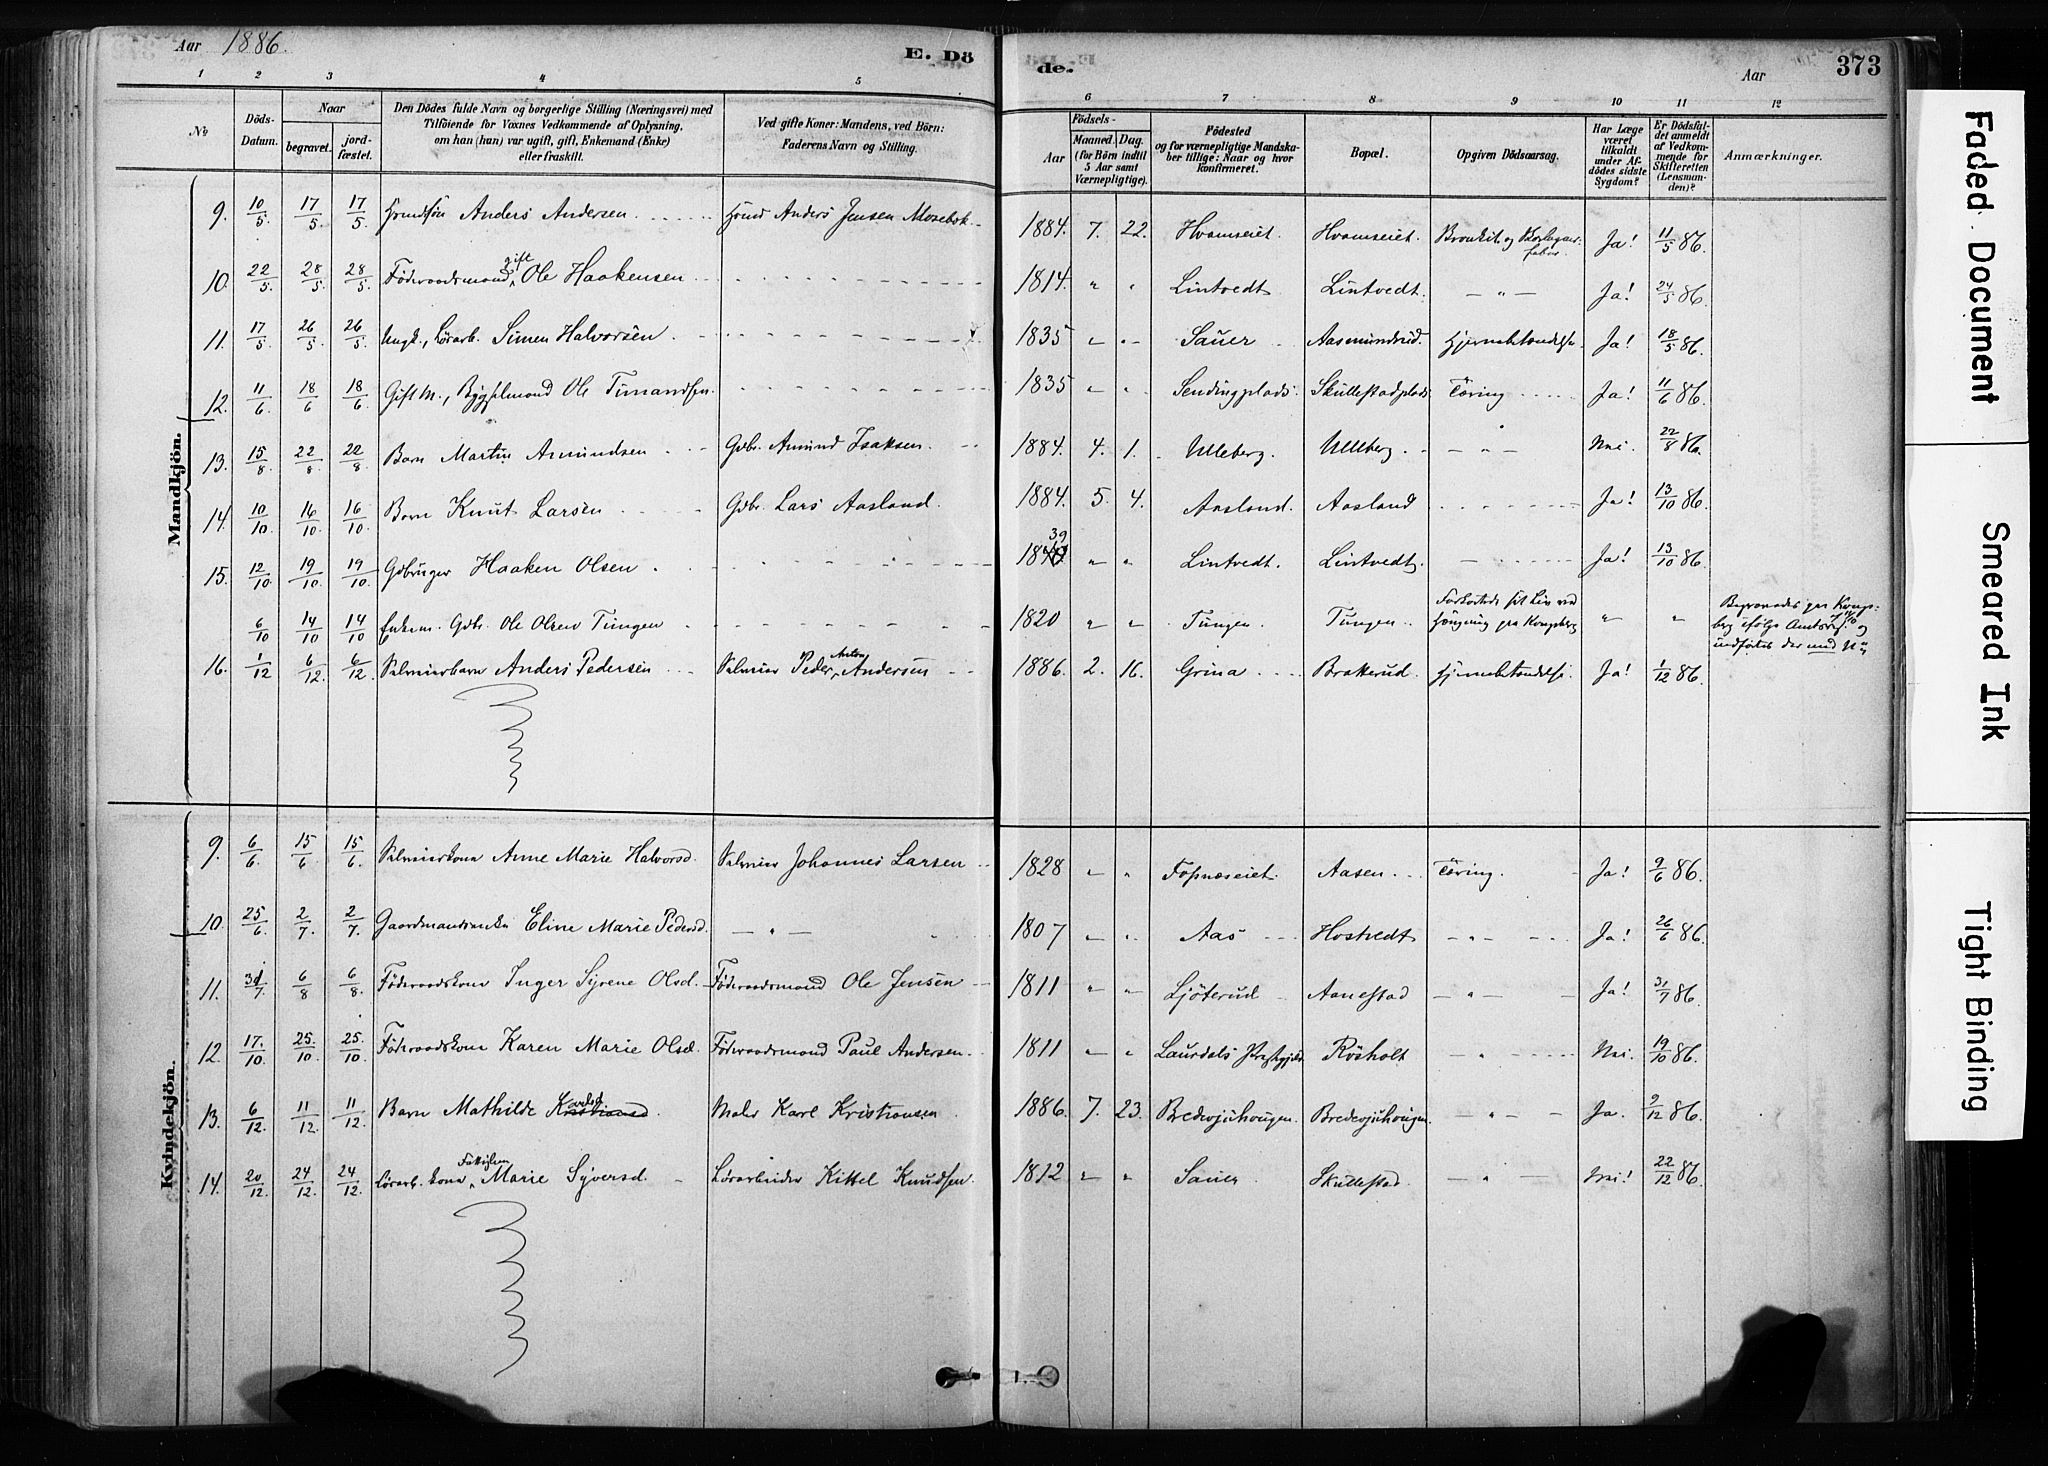 Aar 1886.
E. Dö de.
Aar 373
1 2 3 4 5 6 7 8 9 10 11 12
No
Döds-Datum.
Naar
begravet.
jord-fæstet.
Den Dödes fulde Navn og borgerlige Stilling (Næringsvei) med
Tilföiende for Voxnes Vedkommende af Oplysning,
om han (hun) var ugift, gift, Enkemand (Enke)
eller fraskilt.
Ved gifte Koner: Mandens, ved Börn:
Faderens Navn og Stilling.
Födsels-
Aar
Maaned. Dag.
(for Börn indtil
5 Aar samt
Værnepligtige).
Födested
og for værnepligtige Mandska-
ber tillige: Naar og hvor
konfirmeret.
Bopæl.
Opgiven Dödsaarsag.
Har Læge
været
tilkaldt
under Af-
dödes sidste
Sygdom?
Er Dödsfal-
det anmeldt
af Vedkom-
mende for
Skifteretten
(Lensman-
den)?
Anmærkninger.
Mandkjön.
9. 10/5 17/5 17/5 Anders Andersen Anders Jensen Mosebek 1884. 7. 22. Hvamseiet. Hvamseiet. Bronkit. og Ja! 11/5 86.
10. 22/5. 28/5. 28/5. Föderaadsmand, gift Ole Haakensen 1814. " " Lintvedt Lintvedt. — " — Ja! 24/5 86.
11. 17/5 26/5 26/5 Ungk., Lörarb. Simen Halvorsen 1835 " " Sauer Aasmundrud. Hjernebetændelse. Ja! 18/5 86.
12. 11/6 18/6 18/6. Gift M., Bygselmand Ole 1835 " " Sendingplads. Skullestadplads Tæring Ja! 11/6 86.
13. 15/8 22/8 22/8 Barn Martin Asmundsen Gdbr. Asmund Isaksen. 1884. 4. 1. Ulleberg. Ulleberg. — " — Nei. 22/8 86.
14. 10/10 16/10 16/10 Barn Knut Larsen Gdbr. Lars Aasland. 1884. 5. 4. Aasland. Aasland Ja! 13/10 86.
15. 12/10 19/10 19/10 Gdbruger Haaken Olsen 1839 " " Lintvedt. Lintvedt. Ja! 13/10 86.
6/10 14/10 14/10 Enkem. Gdbr. Ole Olsen Tungen 1820 " " Tungen. Tungen. Forkortede sit Liv ved hængning paa Kongsberg " "
16. 1/12 6/12. 6/12. Selveierbarn Anders Pedersen Selveier Peder Anton Andersen 1886. 2. 16. Grina Brakerud. Hjernebetændelse. Ja! 1/12 86.
Kvindekjön.
9. 6/6. 15/6 15/6. Selveierkone Anne Marie Halvorsd. Selveier Johannes Larsen 1828 " " Fosnæseiet. Aasen. Tæring. Ja! 9/6 86.
10. 25/6. 2/7. 2/7. Gaardmandsenke Eline Marie Pedersd. — " — 1807 " " Aas Hostvedt — " — Ja! 26/6 86.
11. 31/7. 6/8 6/8. Föderaadskone Inger Syrene Olsd. Föderaadsmand Ole Jensen 1811 " " Ljöterud Aanestad — " — Ja! 31/7 86.
12. 17./10. 25./10 25./10 Föderaadskone Karen Marie Olsd. Föderaadsmand Paul Andersen. 1811 " " Laurdals Præstegjeld Rösholt " Nei. 19/10 86.
13. 6/12. 11/12 11/12. Barn Mathilde Karlsd Maler Karl Kristiansen 1886. 7. 23. Bredesjuhougen. Bredesjuhougen. " Ja. 9/12 86.
14. 20/12. 24/12. 24/12. Lörarb. kone, Fattiglem Marie Syversd. Lörarbeider Kittel Knudsen. 1812 " " Sauer Skullestad. — " — Nei! 22/12 86.
1.
Faded Document
Smeared Ink
Tight Binding